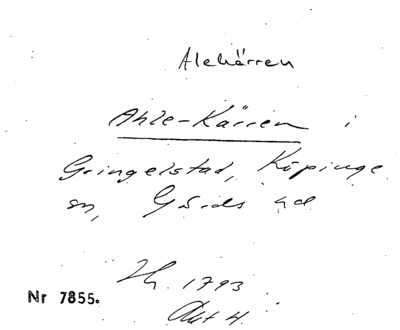 Alekärren
Ahle-Kärren i
Gringelstad, Köpinge
sn, Gärds hd
1793
Akt 4.
Nr 7855.